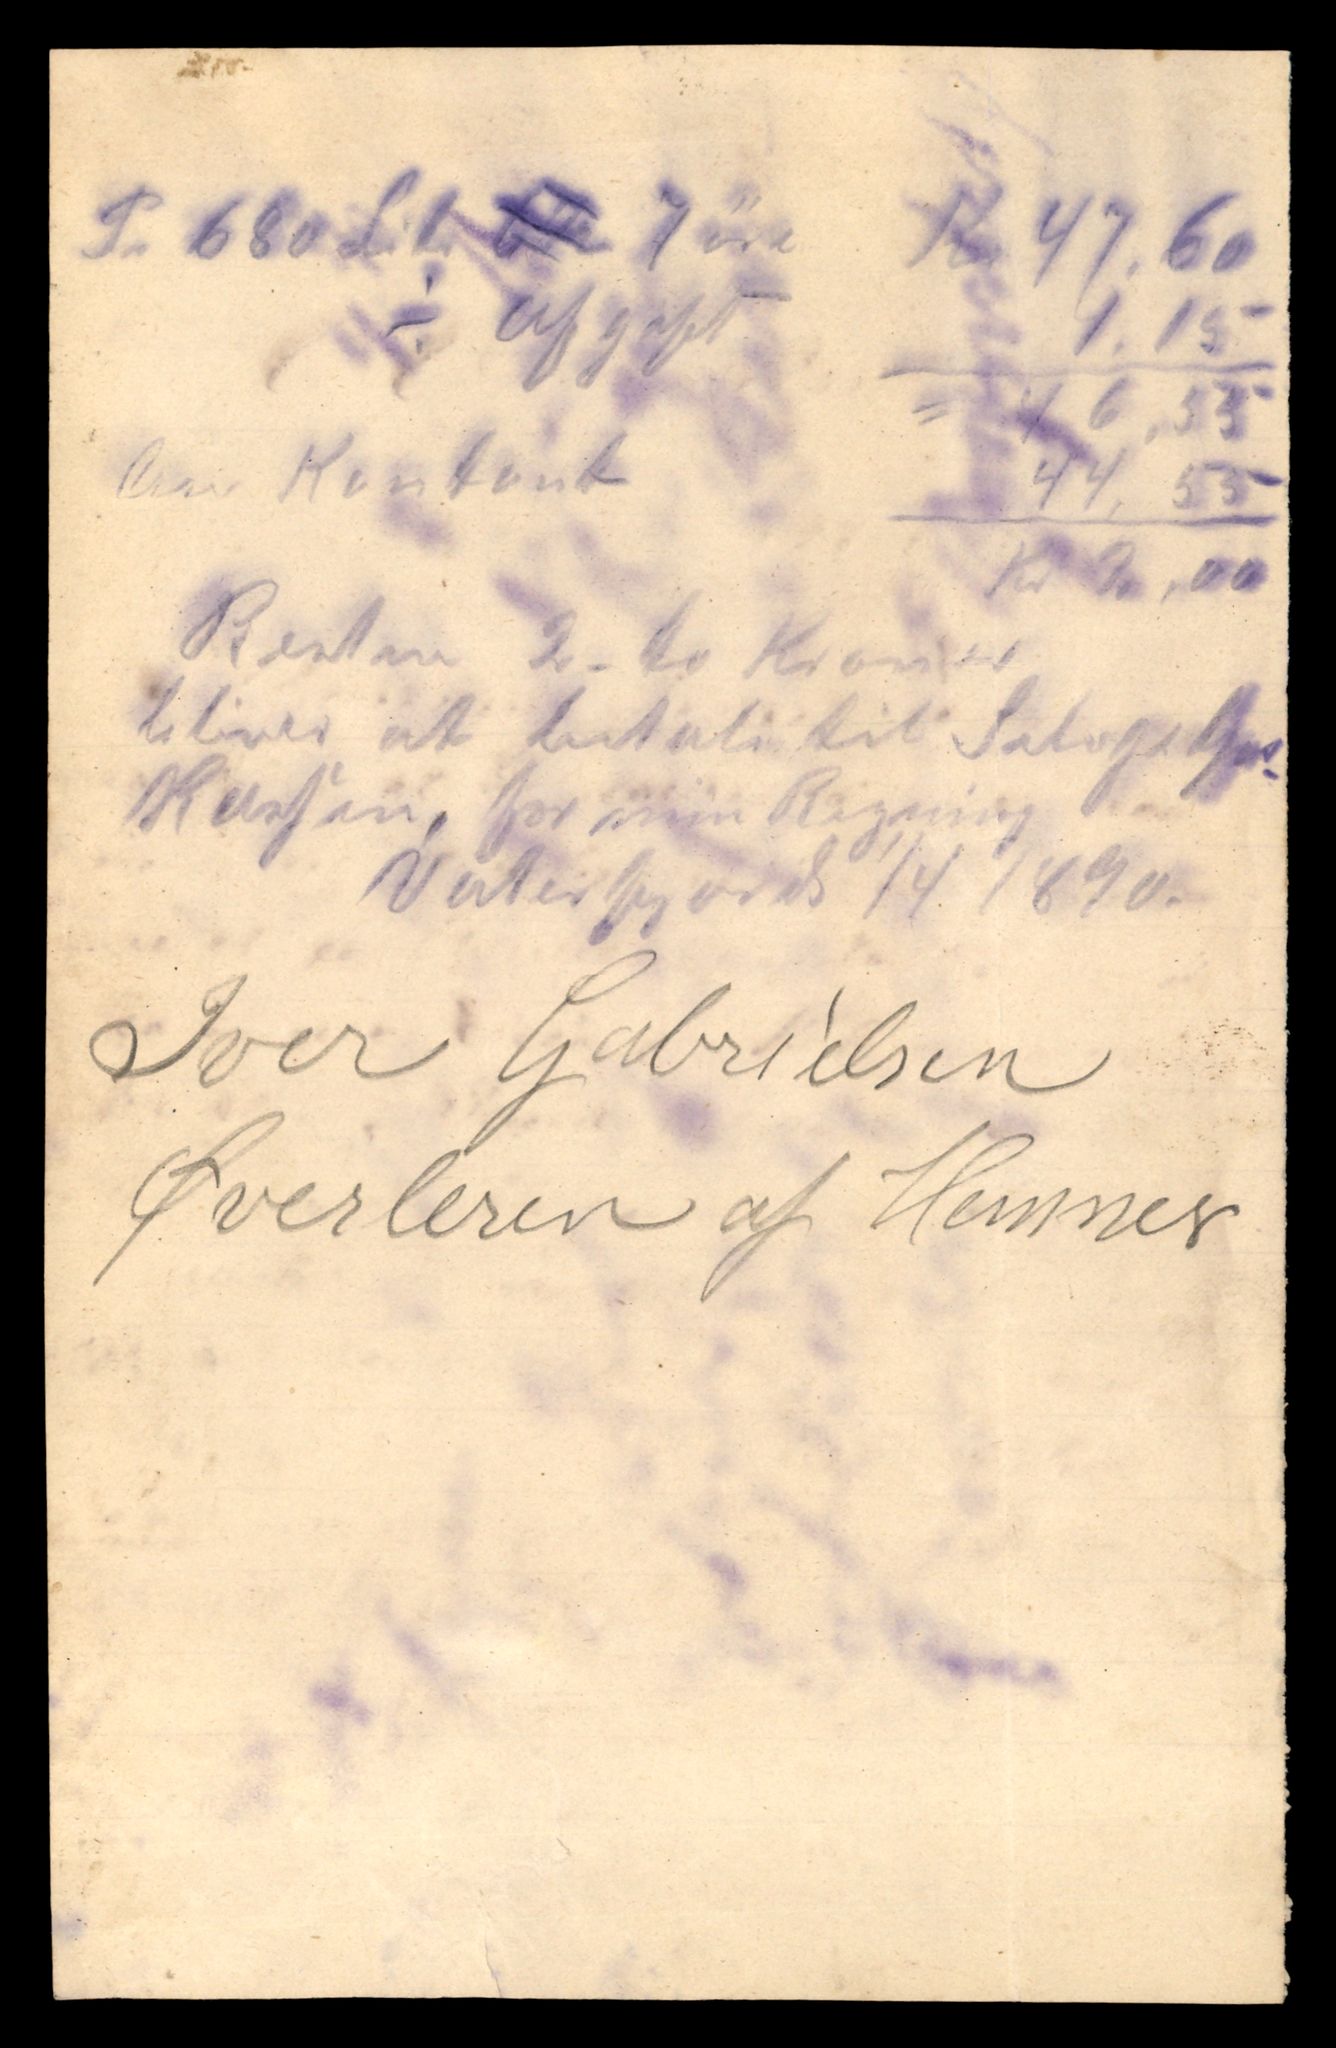 Pr 680 Litr 7 öre Kr 47,60
÷ Afgift 1.15
= 46,55
Kontant 44,55
Kr 2,00
Resten 2- to Kroner
bliver at betale til
for min Regning
Vaterfjord 14 1890.
Iver Gabrielsen
Øverleren af Hemnes